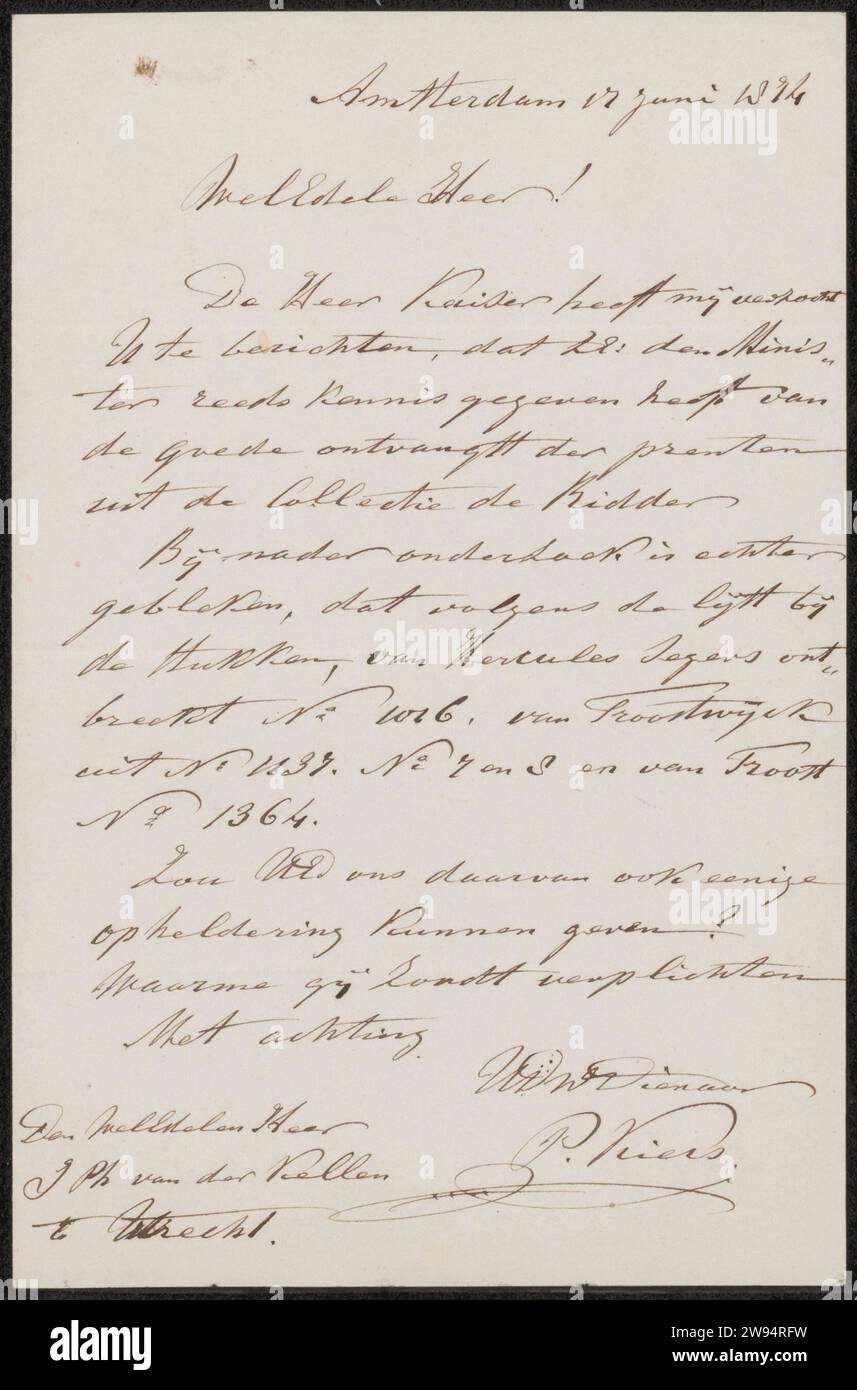 Amsterdam 17 Juni 1874
WelEdele Heer!
De Heer Kaiser heeft mij verzocht
U te berichten, dat ZE: den Minis„
ter reeds kennis gegeven heeft van
de goede ontvangst der prenten
uit de Collectie de Ridder
Bij nader onderzoek is echter
gebleken, dat volgens de lijst bij
de stukken, van Hercules Segers ont„
breekt No 1016. van Troostwyck
uit No 1137. No 7 en 8 en van Troost
No 1364.
Zou UEd ons daarvan ook eenige
opheldering kunnen geven?
Waarme gij zoudt verplichten
Met achting
UEd Dienaar
P. Kiers.
Den WelEdelen Heer
J Ph van der Kellen
te Utrecht.
alamy
Image ID: 2W94RFW
www.alamy.com